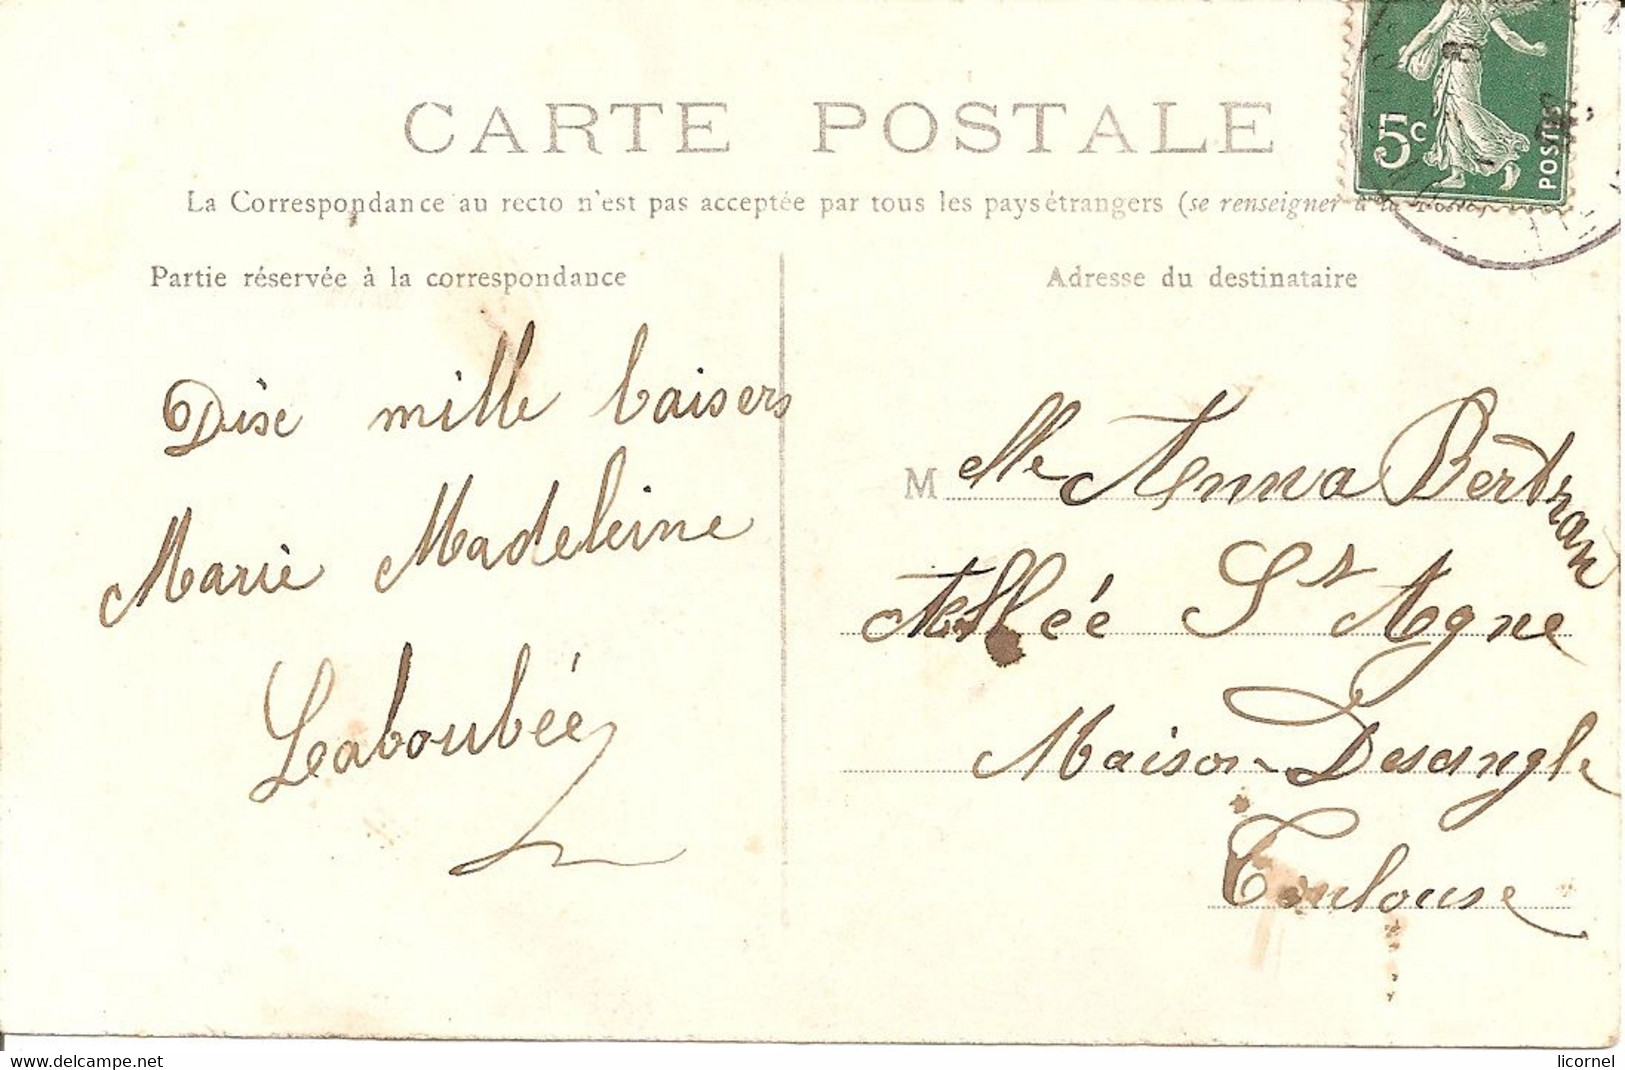 CARTE POSTALE
La Correspondance au recto n'est pas acceptée par tous les pays étrangers (se renseigner à la Poste)
Partie réservée à la correspondance
Adresse du destinataire
5c
POSTES
Dise mille baisers
Marie Madeleine
Laboubée
Melle Anna Bertran
Allée St Agne
Maison Desangle
Toulouse
www.delcampe.net
licornel